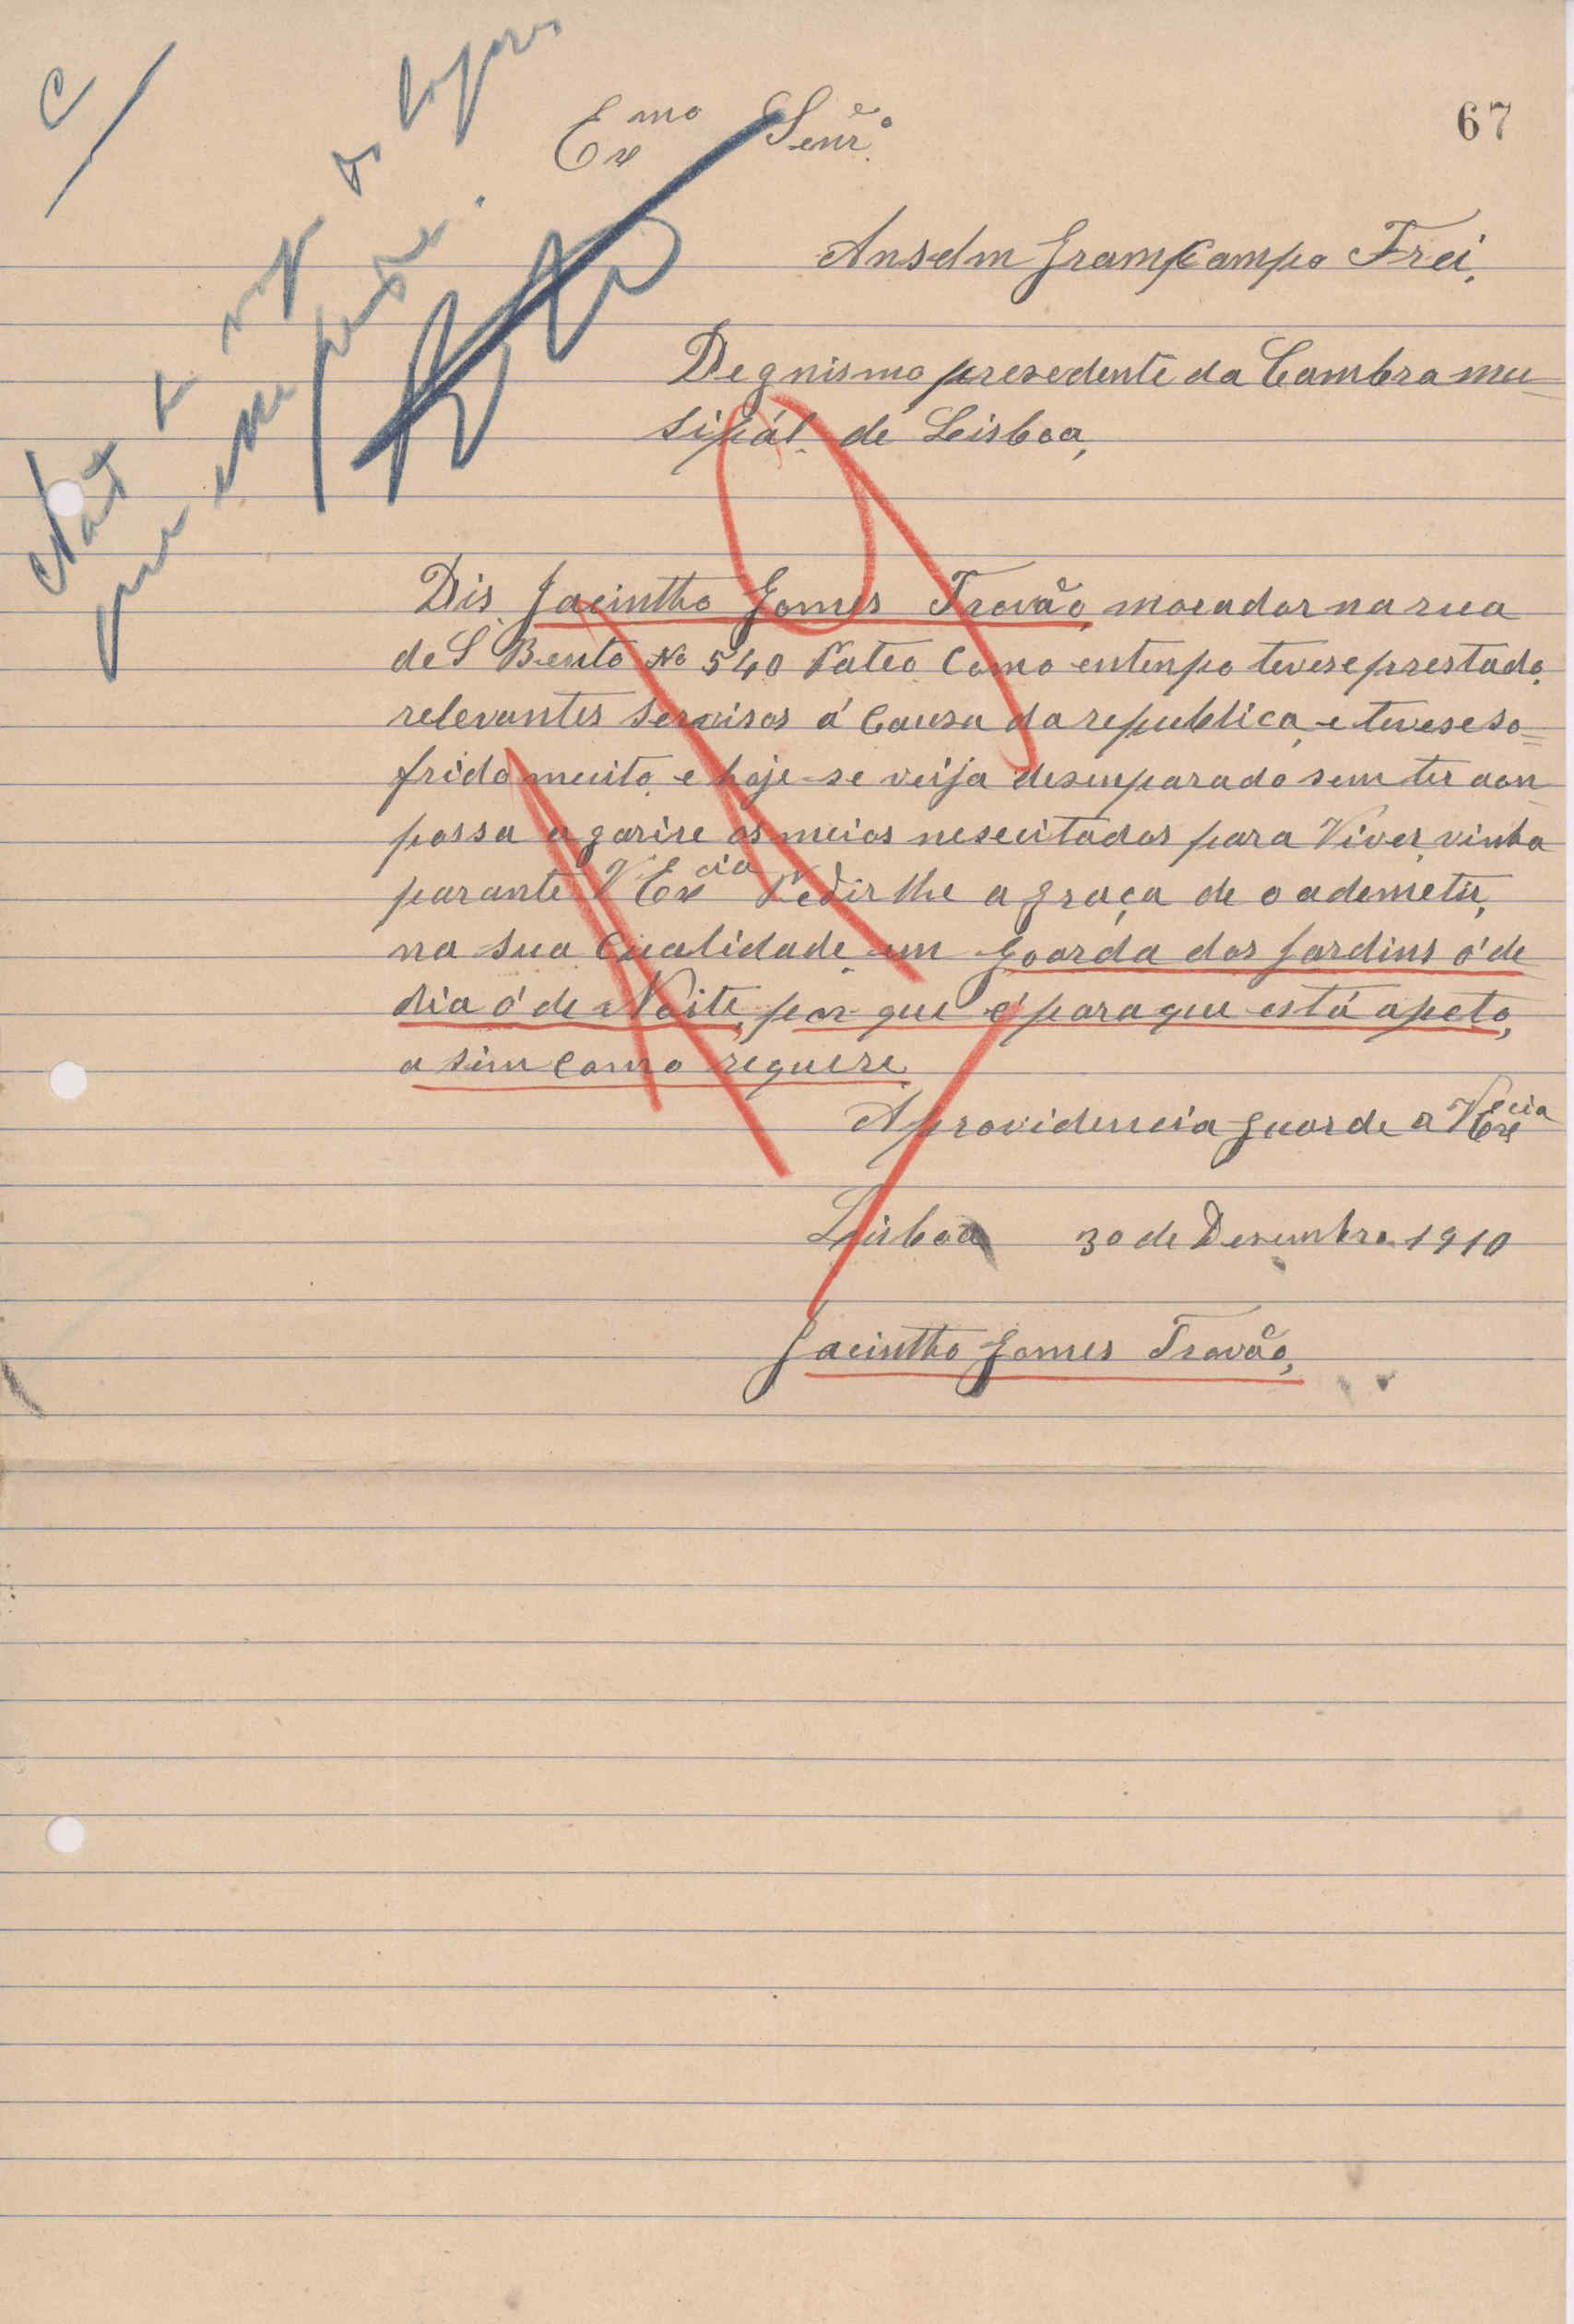 C
67
Exmo Senr.o
Anselm Gramp Campo Frei,
Degnismo presedente da Cambra mu=
sipál. de Leisboa,
Dis Jacintho Gomes Trovão, morador na rua
de S Bento No 540 Pateo Como entenpo tivese prestado
relevantes servisos á Causa da republica, e tivese so=
frido muito, e hoje se veija desenparado sem ter aon
possa agarire os meios nesecitados para Viver, vinha
parante V Excia Pedir lhe a graça de o ademetir,
na sua Cualidade em goarda dos Jardins ó de
dia ó de Noite, por que é para que está apeto,
a sim Como requere
A providencia guarde a V Excia
Leisboa 30 de Desembro 1910
Jacintho Gomes Trovão,